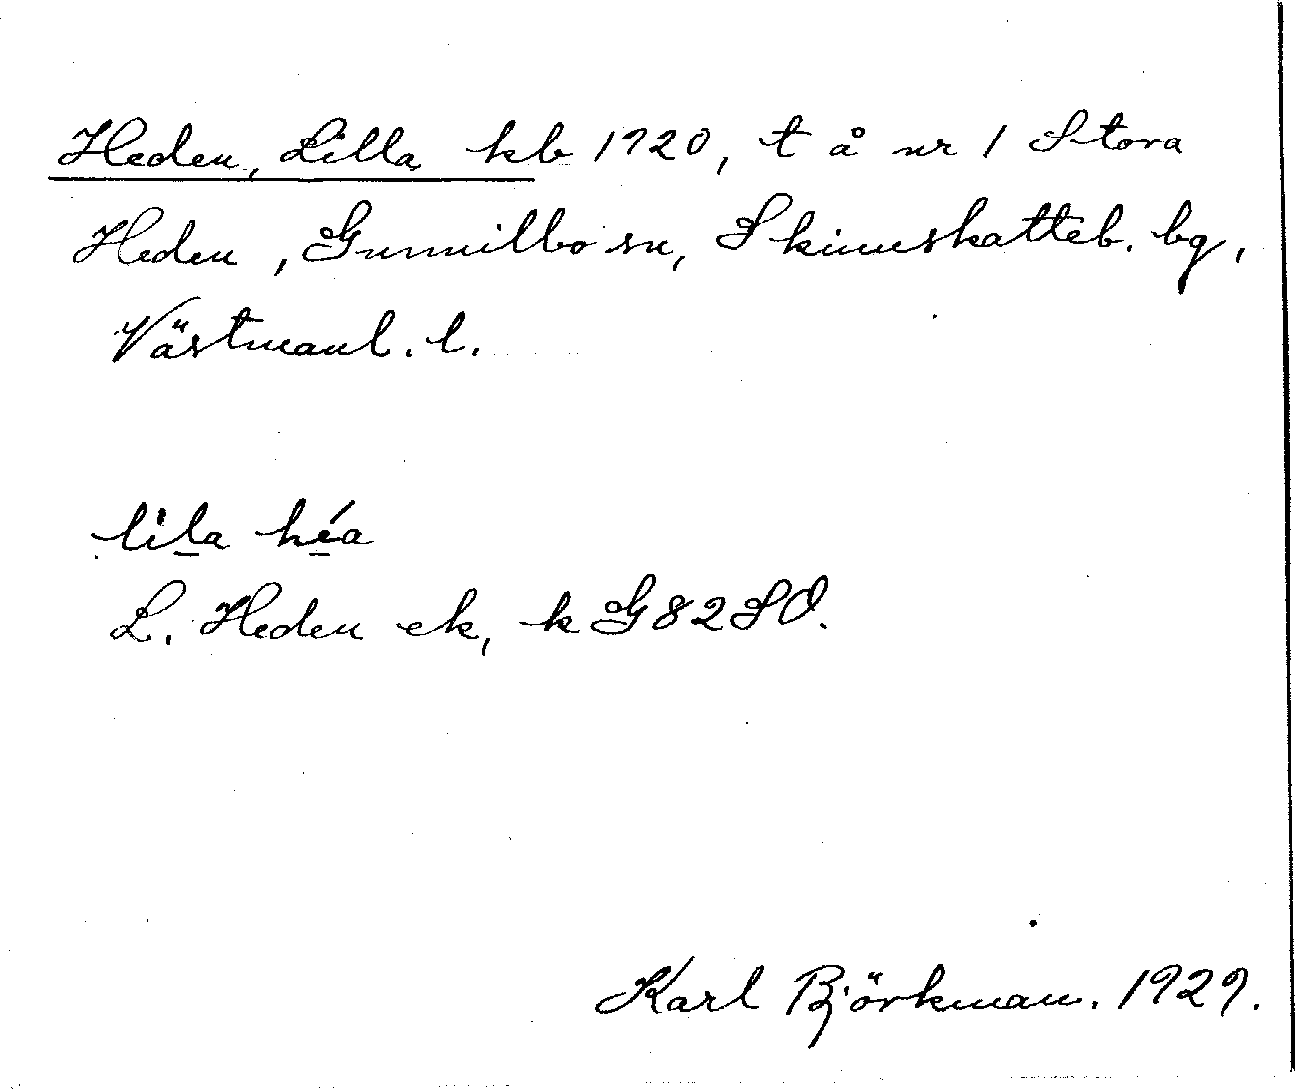 Heden, Lilla kb 1720, t å nr 1 Stora
Heden, Gunnilbo sn, Skinnskatteb. bg,
Västmanl. l.
lila héa
L. Heden ek, k G82SO.
Karl Björkman. 1929.